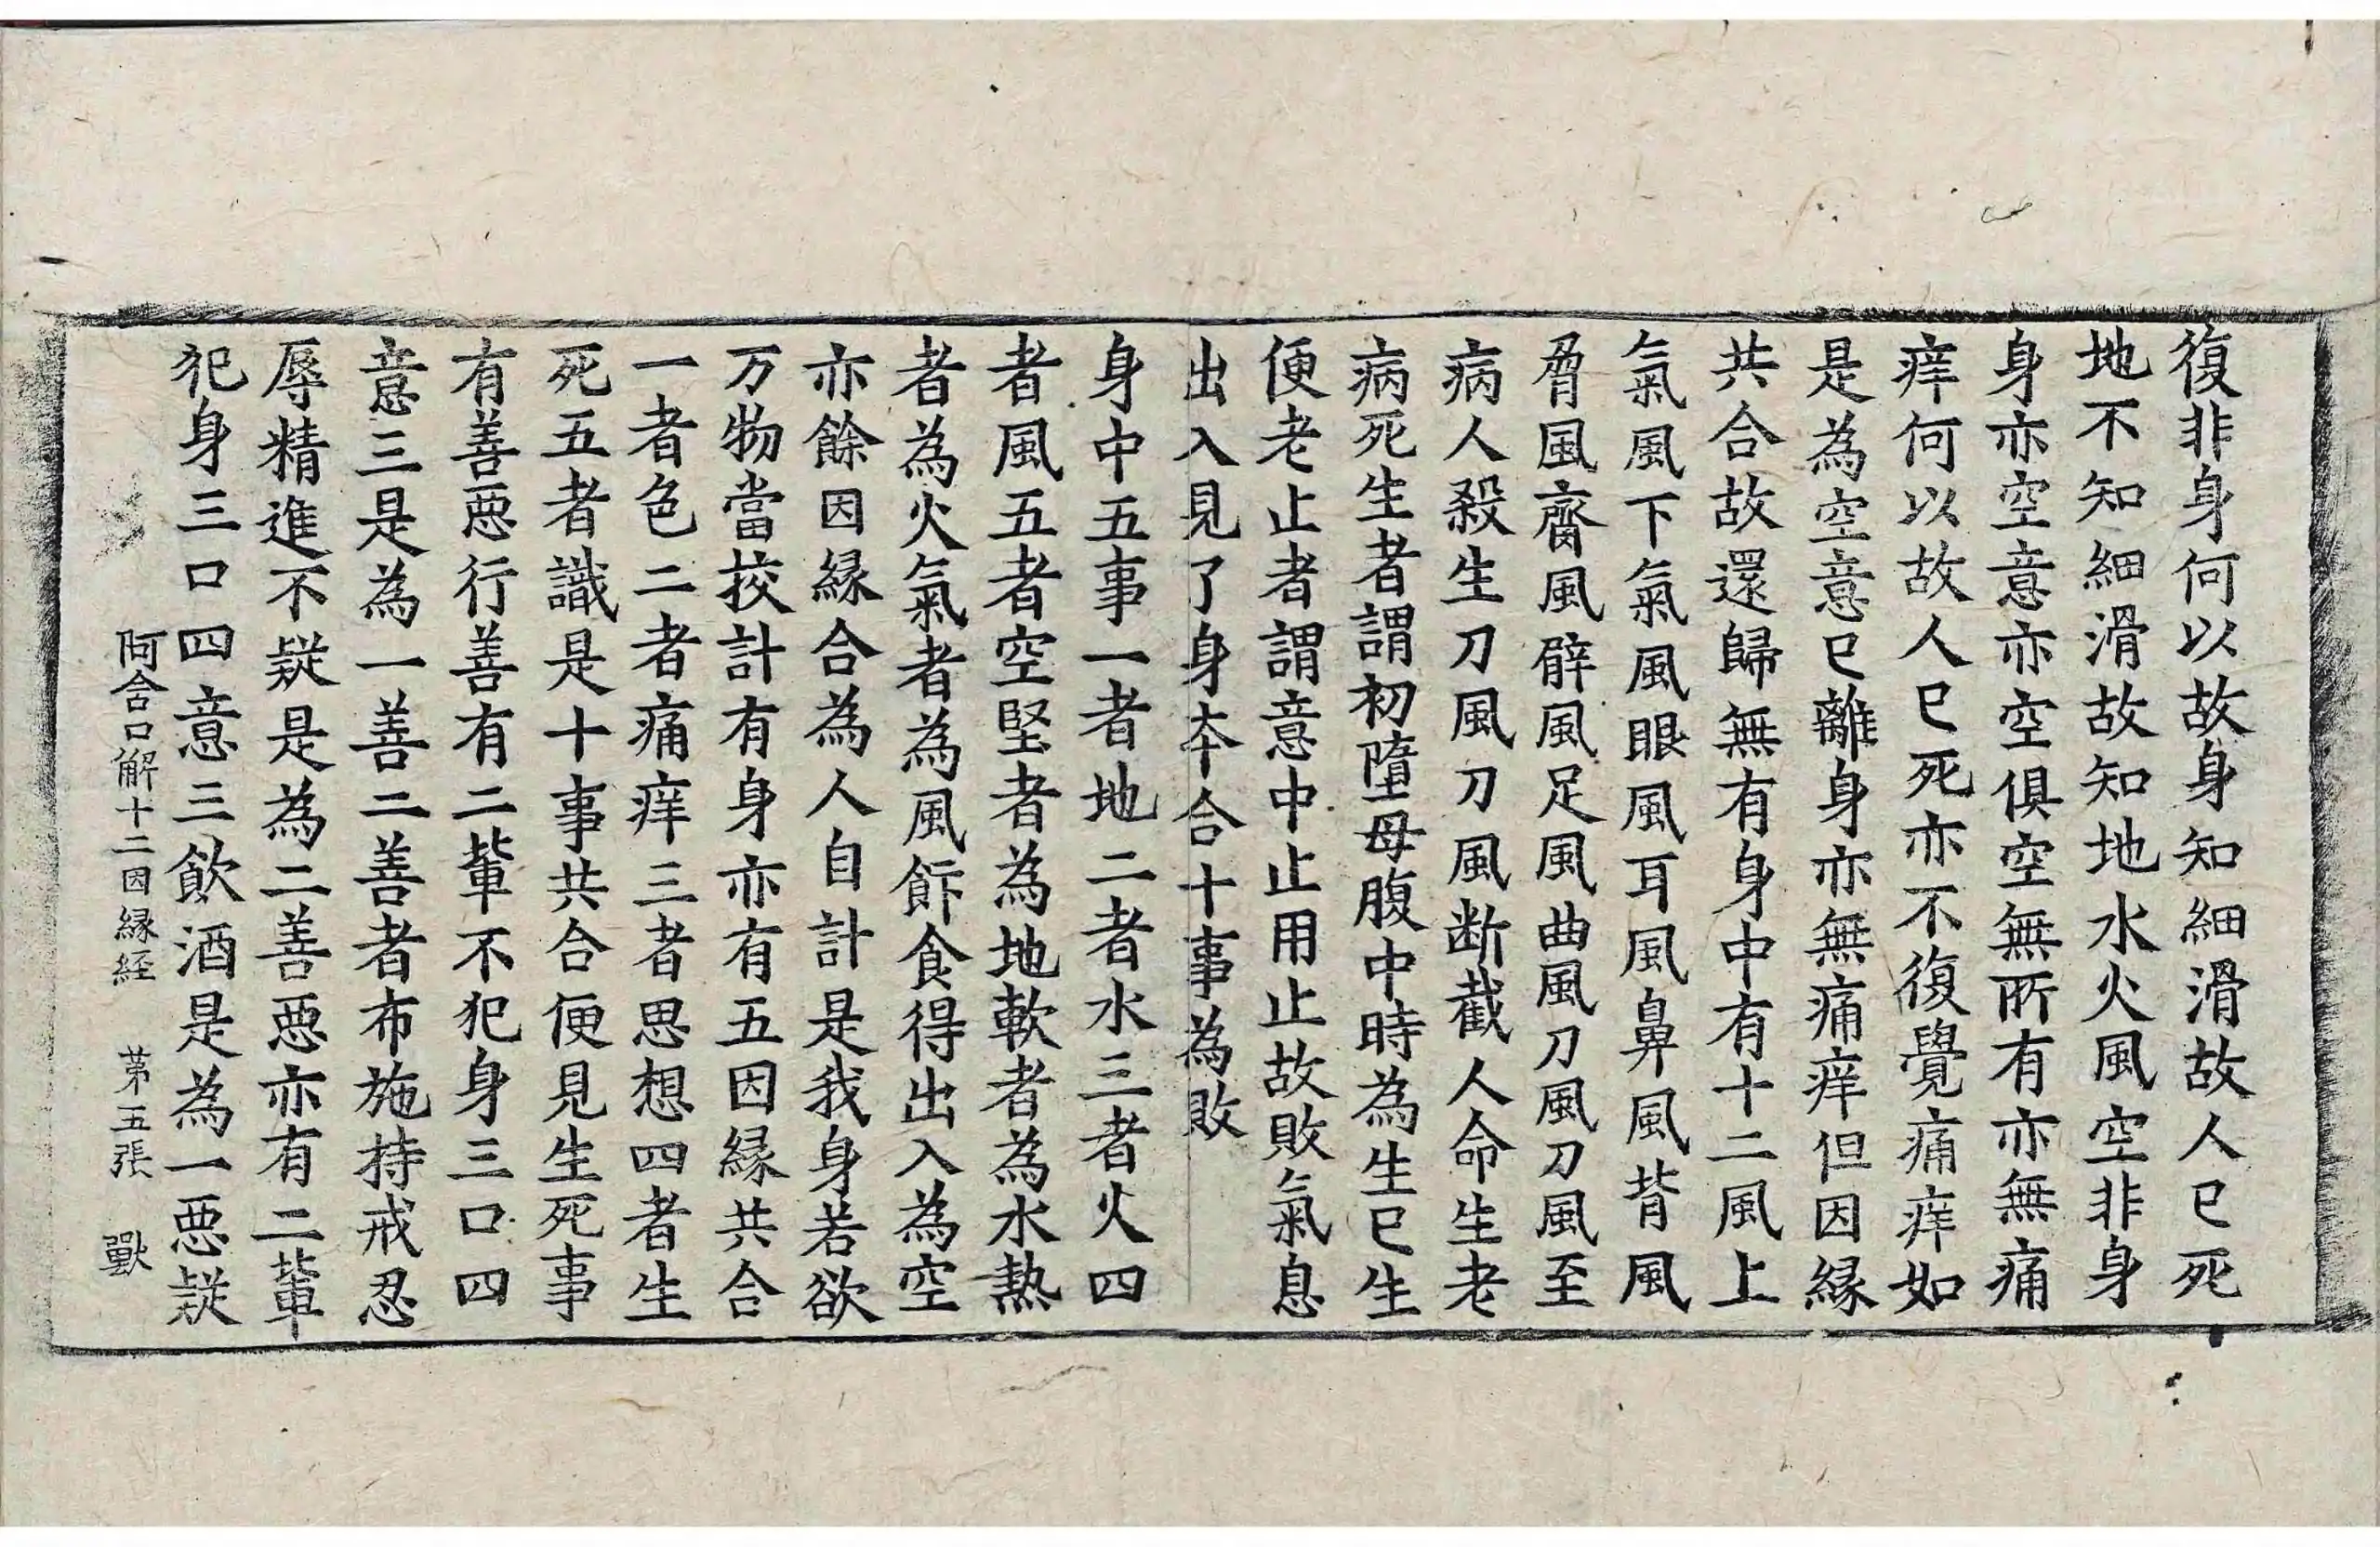 復非身何以故身知細滑故人已死
地不知細滑故知地水火風空非身
身亦空意亦空俱空無所有亦無痛
痒何以故人已死亦不復覺痛痒如
是為空意已離身亦無痛痒但因緣
共合故還歸無有身中有十二風上
氣風下氣風眼風耳風鼻風背風
脅風齎風臂風足風曲風刀風刀風至
病人殺生刀風刀風断截人命生老
病死生者謂初墮母腹中時為生已生
便老止者謂意中止用止故敗氣息
出入見了身夲合十事為敗
身中五事一者地二者水三者火四
者風五者空堅者為地軟者為水熱
者為火氣者為風飵食得出入為空
亦餘因緣合為人自計是我身若欲
万物當挍計有身亦有五因緣共合
一者色二者痛痒三者思想四者生
死五者識是十事共合便見生死事
有善惡行善有二軰不犯身三口四
意三是為一善二善者布施持戒忍
辱精進不疑是為二善惡亦有二軰
犯身三口四意三飲酒是為一惡疑
阿含口解十二因緣経 苐五張